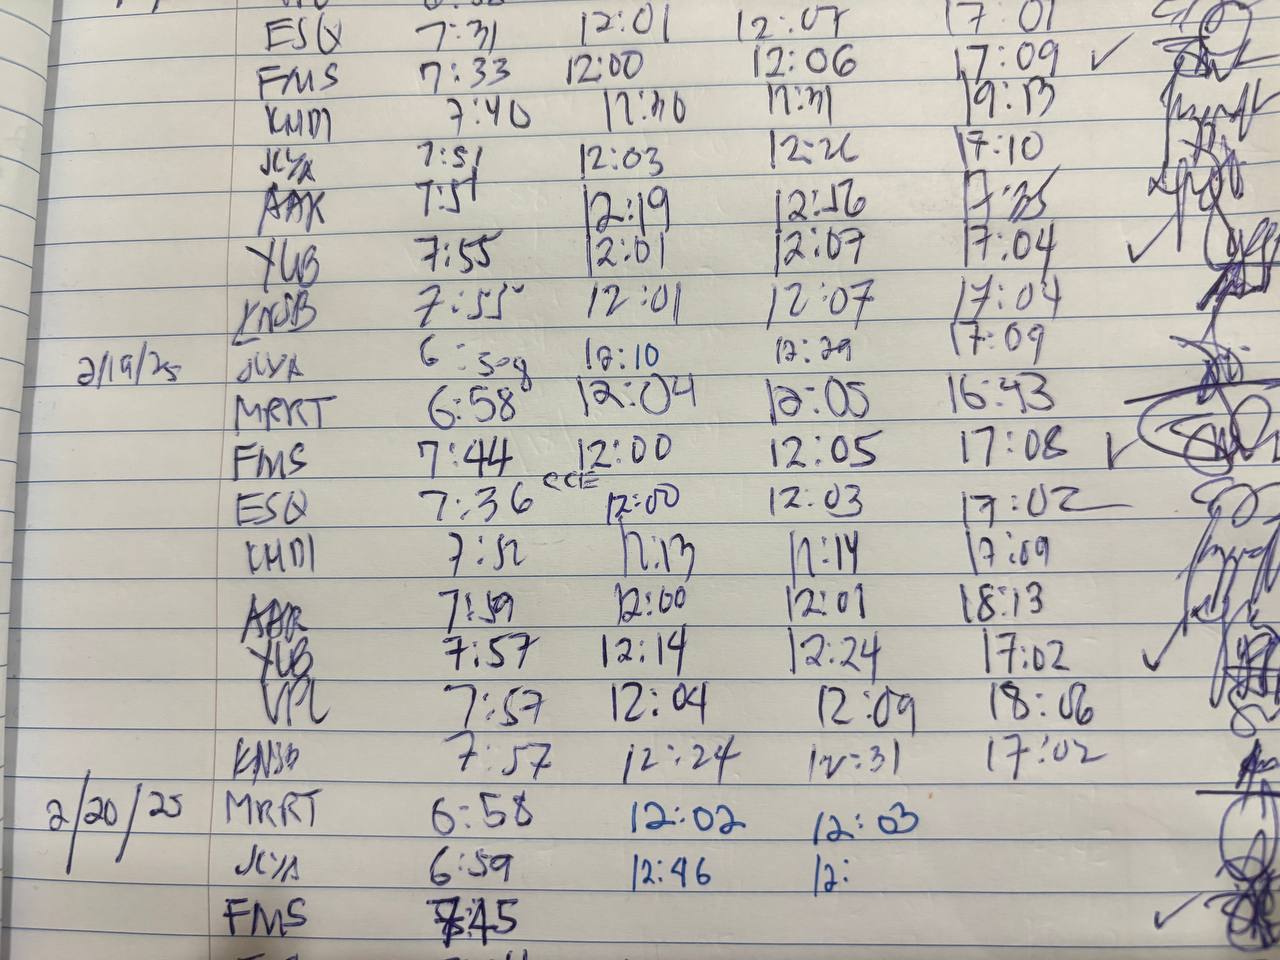 ESQ 7:31 12:01 12:07 17:01
FMS 7:33 12:00 12:06 17:09 ✓
KHDI 7:40 12:30 12:31 19:13
JKYA 7:51 12:03 12:26 17:10
AAR 7:51 12:19 12:56 17:35
YUB 7:55 12:01 12:07 17:04 ✓
KNSB 7:55 12:01 12:07 17:04
2/19/25 JKYA 6:59 12:10 12:29 17:09
MRRT 6:58 12:04 12:05 16:43
FMS 7:44 12:00 12:05 17:08 ✓
CCIE
ESQ 7:36 12:00 12:03 17:02
KHDI 7:52 12:13 12:14 17:09
AAR 7:59 12:00 12:01 18:13
YUB 7:57 12:14 12:24 17:02 ✓
VPL 7:57 12:04 12:09 18:06
KNSB 7:57 12:24 12:31 17:02
2/20/25 MRRT 6:58 12:02 12:03
JKYA 6:59 12:46 12:
FMS 7:45 ✓